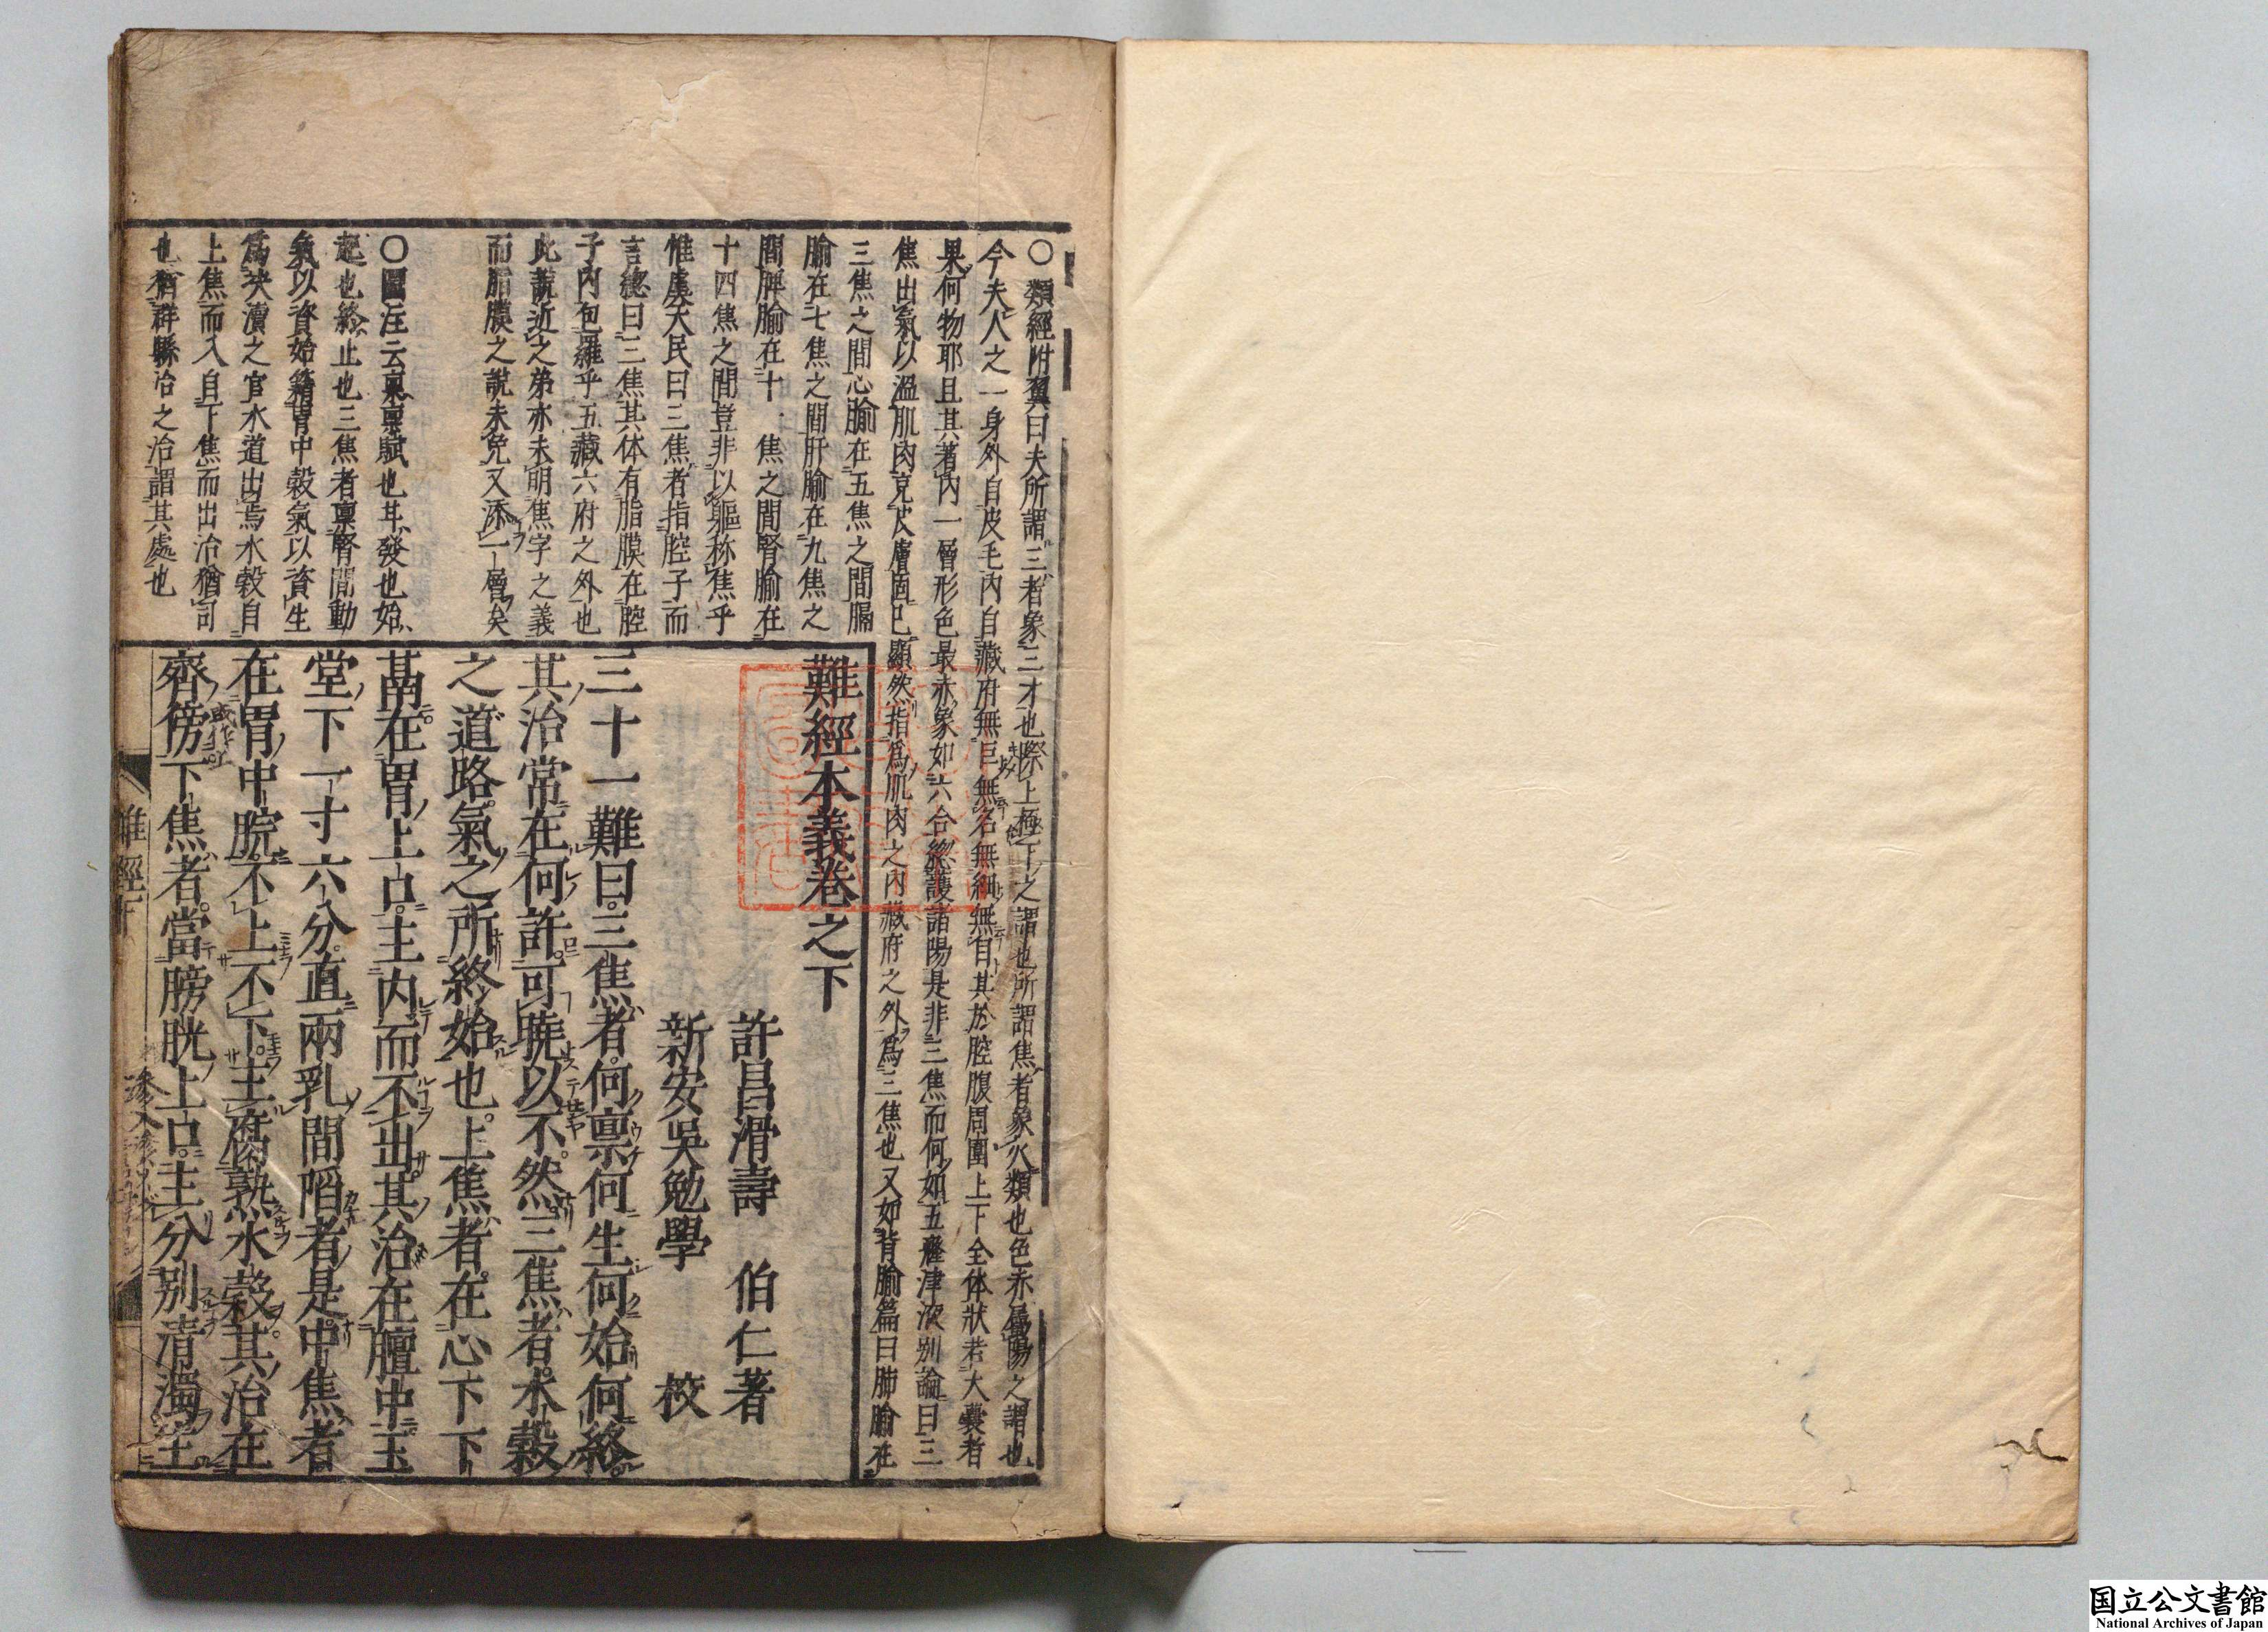 ○類經附翼曰夫所謂三者象三才也際上極下之謂也所謂焦者象火類也色赤屬陽之謂也
今夫人之一身外自皮毛內自藏府無巨無名無細無目其於腔腹周圍上下全体狀若大囊者
果何物耶且其著內一層形色最赤象如六合總護諸陽是非三焦而何如五癃津液別論曰三
焦出氣以溫肌肉充皮膚固已顯然指爲肌肉之內藏府之外爲三焦也又如背腧篇曰肺腧在
三焦之間心腧在五焦之間膈
腧在七焦之間肝腧在九焦之
間脾腧在十焦之間腎腧在
十四焦之間豈非以軀称焦乎
惟虞天民曰三焦者指腔子而
言總曰三焦其体有脂膜在腔
子內包羅乎五藏六府之外也
此說近之第亦未明焦字之義
而脂膜之說未免又添一層矣
○圖注云稟稟賦也生發也始
起也終止也三焦者稟腎間動
氣以資始籍胃中穀氣以資生
爲決瀆之官水道出焉水穀自
上焦而入自下焦而出治猶司
也猶群縣治之治謂其處也
難經本義卷之下
許昌滑壽 伯仁著
新安吳勉學 校
三十一難曰三焦者何稟何生何始何終
其治常在何許可曉以不然三焦者水穀
之道路氣之所終始也上焦者在心下下
膈在胃上口主內而不出其治在膻中玉
堂下一寸六分直兩乳間陷者是中焦者
在胃中脘不上不下主腐熟水穀其治在
齊傍下焦者當膀胱上口主分別清濁主
難經下
国立公文書館
National Archives of Japan